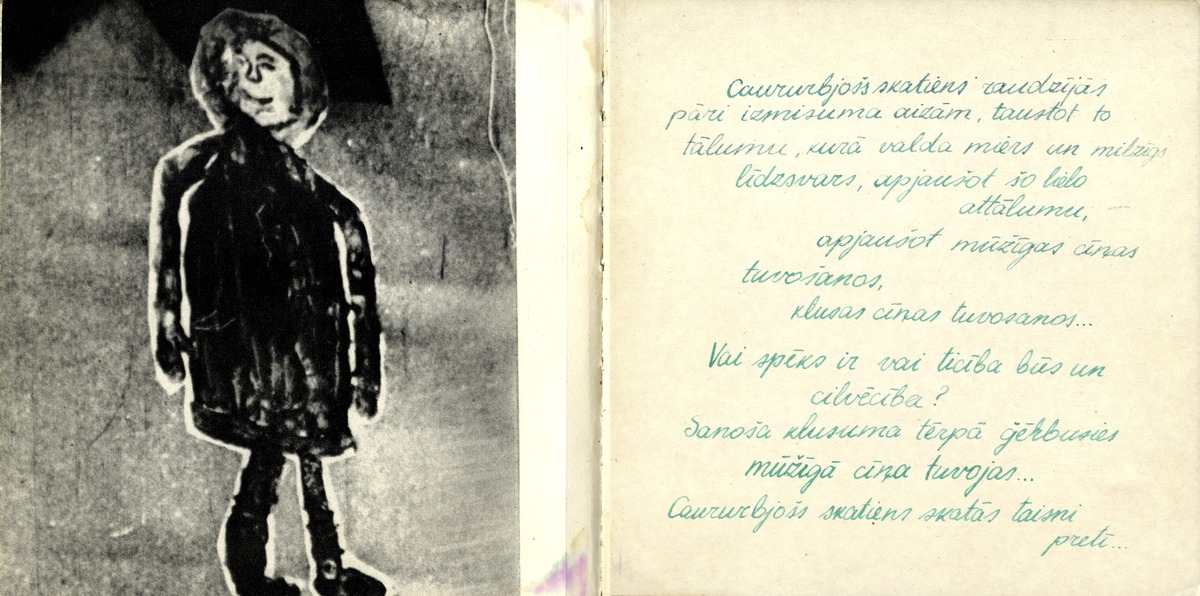 Caururbjošs skatiens raudzījās
pāri izmisuma aizām, taustot to
tālumu, kurā valda miers un milzīgs
līdzsvars, apjaušot šo lielo
attālumu,
apjaušot mūžīgas cīņas
tuvošanos,
klusas cīņas tuvošanos...
Vai spēks ir vai ticība būs un
cilvēcība?
Sanoša klusuma tērpā ģērbusies
mūžīgā cīņa tuvojas...
Caururbjošs skatiens skatās taisni
pretī...